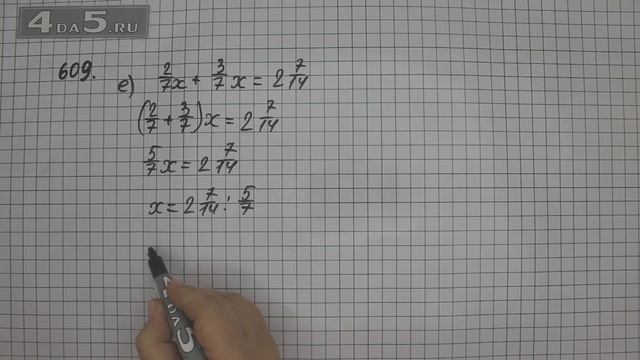 4DA5.RU
609.
е) 2/7x + 3/7 x = 2 7/14
(2/7 + 3/7)x = 2 7/14
5/7 x = 2 7/14
x = 2 7/14 : 5/7